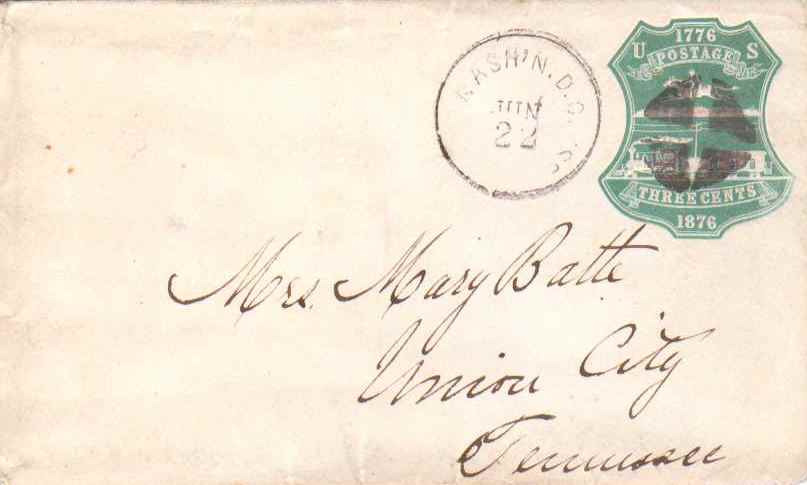 1776
U S
POSTAGE
THREE CENTS
1876
WASH'N. D.C.
JUN
22
Mrs. Mary Batte
Union City
Tennessee